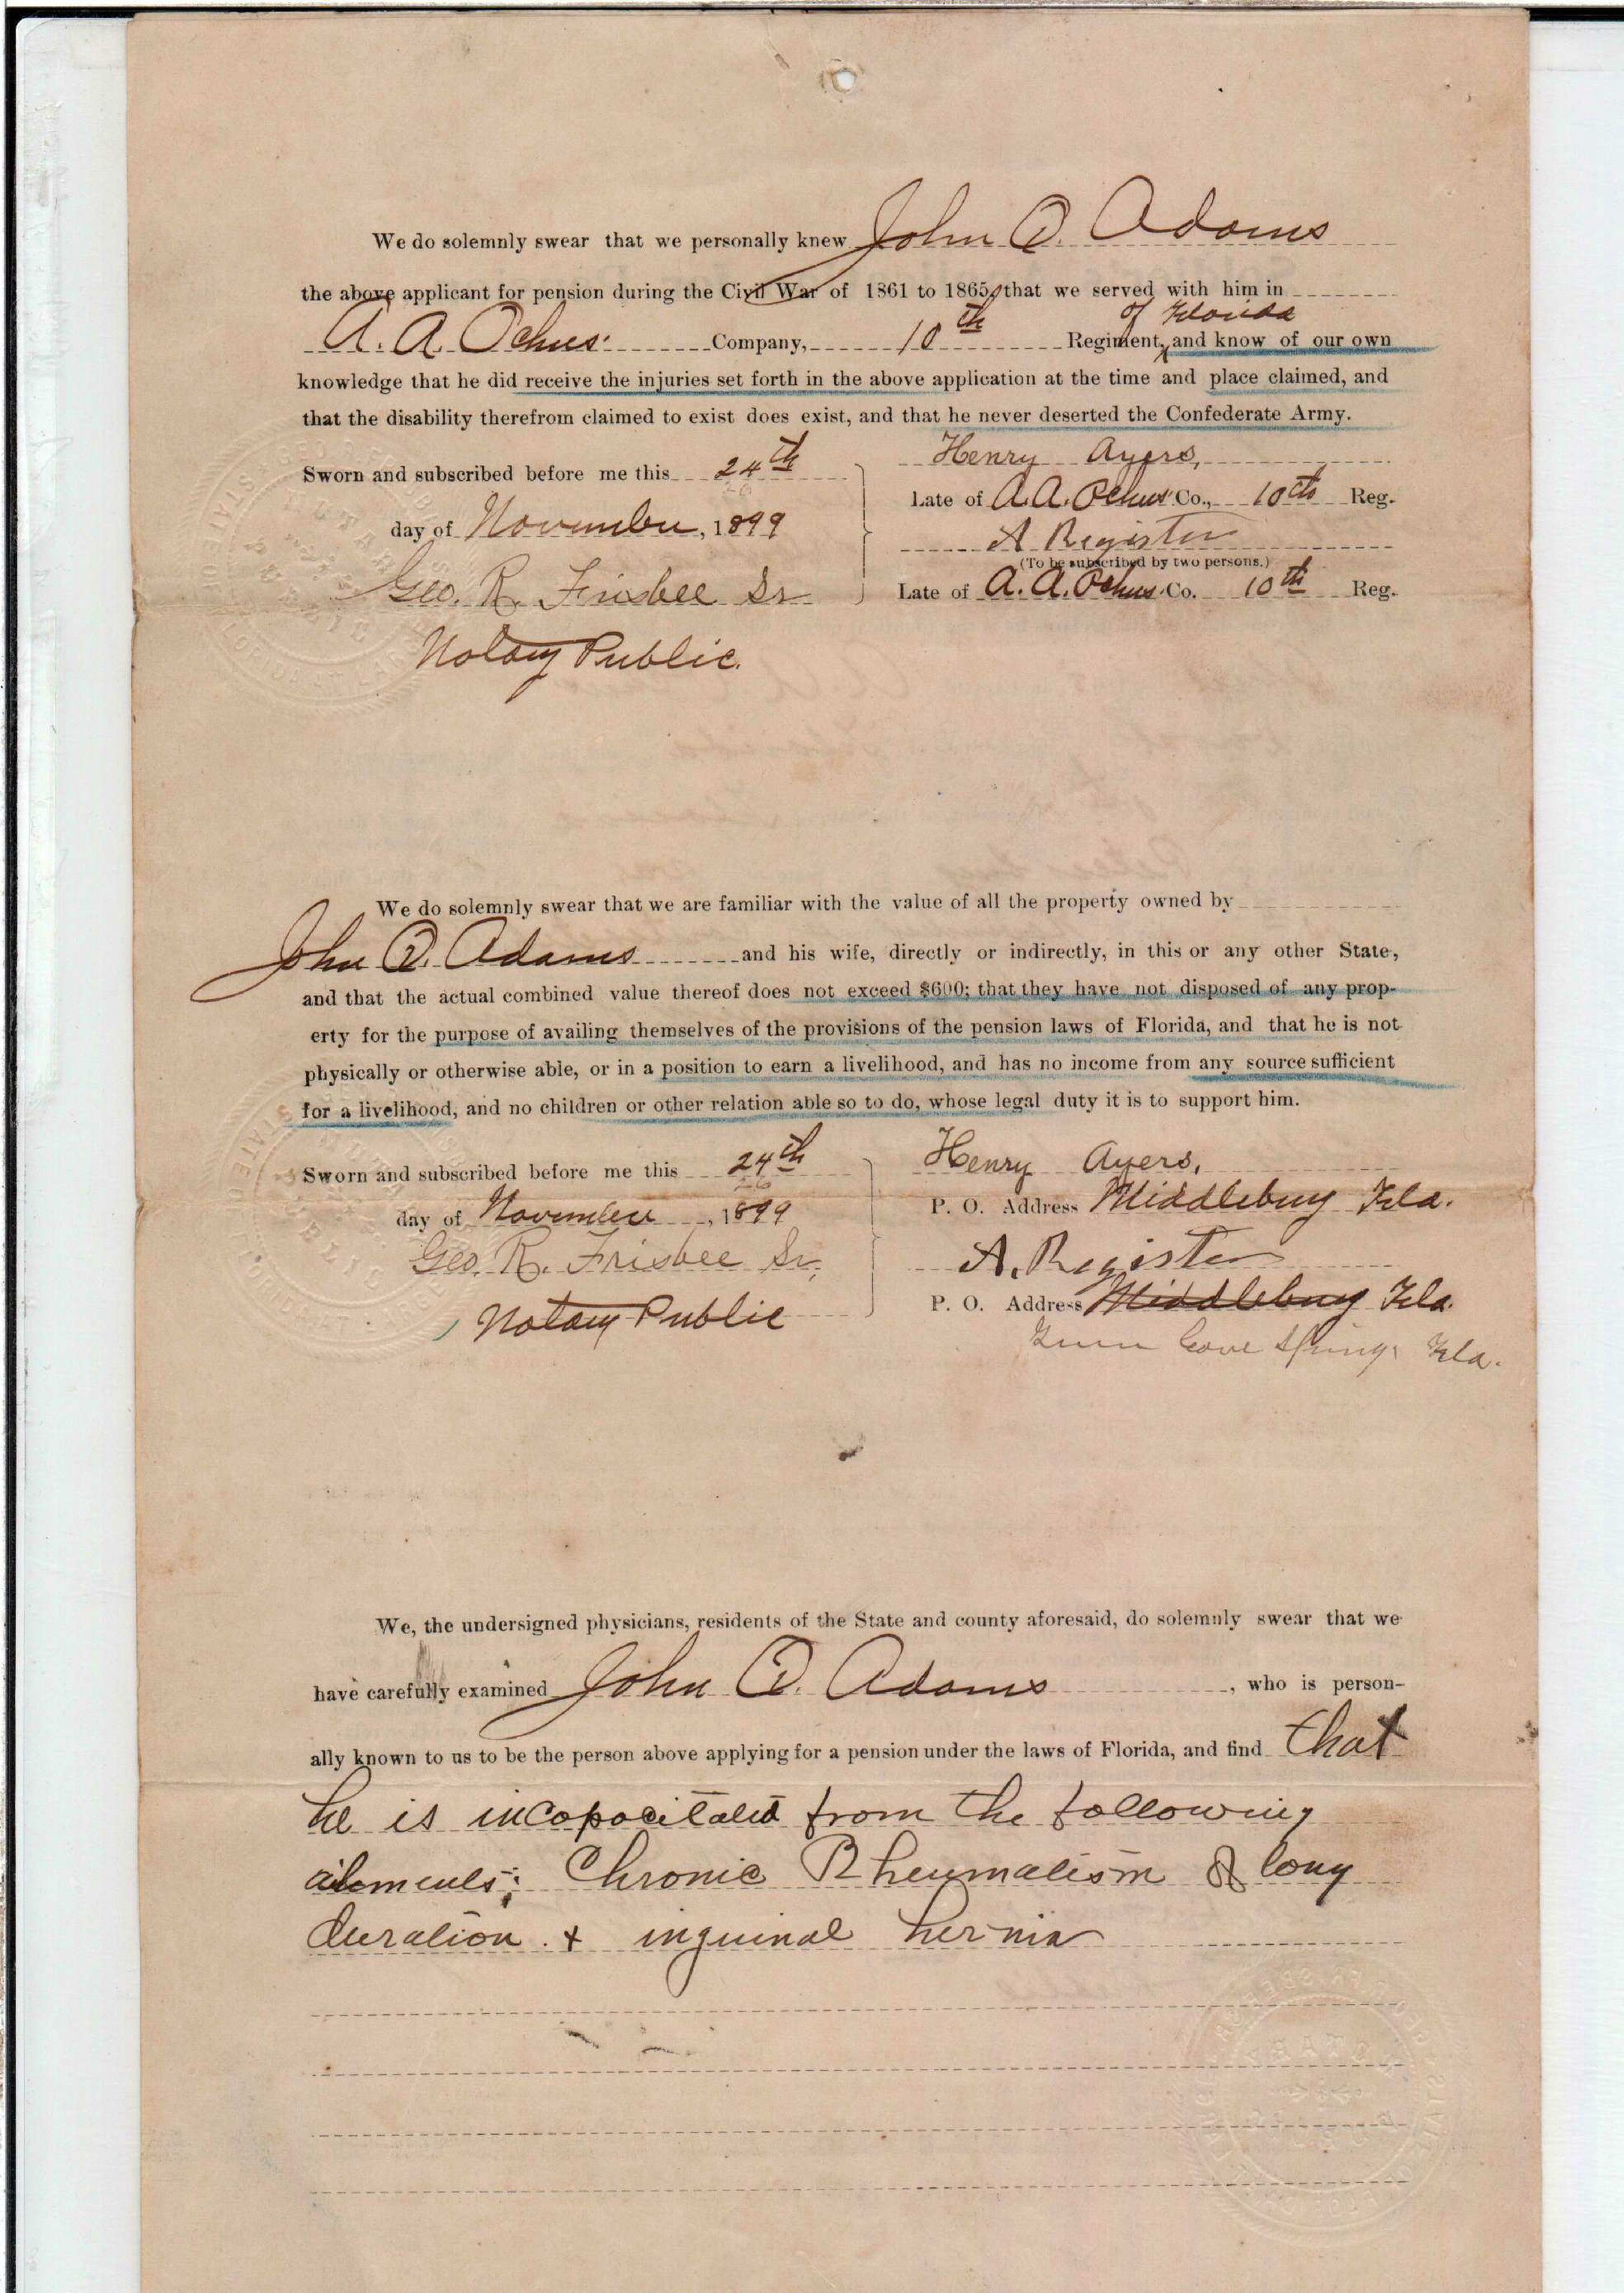 We do solemnly swear that we personally knew John Q. Adams
the above applicant for pension during the Civil War of 1861 to 1865, that we served with him in
of Florida
A. A. Ochus' Company, 10th Regiment, and know of our own
knowledge that he did receive the injuries set forth in the above application at the time and place claimed, and
that the disability therefrom claimed to exist does exist, and that he never deserted the Confederate Army.
Sworn and subscribed before me this 24th
day of November, 1899
Geo. R. Frisbee Sr
Notary Public.
Henry Ayers,
Late of A. A. Ochus' Co., 10th Reg.
A Register
(To be subscribed by two persons.)
Late of A. A. Ochus' Co. 10th Reg.
We do solemnly swear that we are familiar with the value of all the property owned by
John Q. Adams and his wife, directly or indirectly, in this or any other State,
and that the actual combined value thereof does not exceed $600; that they have not disposed of any prop-
erty for the purpose of availing themselves of the provisions of the pension laws of Florida, and that he is not
physically or otherwise able, or in a position to earn a livelihood, and has no income from any source sufficient
for a livelihood, and no children or other relation able so to do, whose legal duty it is to support him.
Sworn and subscribed before me this 24th
day of November, 1899
Geo. R. Frisbee Sr,
Notary Public
Henry Ayers,
P. O. Address Middleburg Fla.
A. Register
P. O. Address Middleburg Fla.
Green Cove Springs Fla.
We, the undersigned physicians, residents of the State and county aforesaid, do solemnly swear that we
have carefully examined John Q. Adams, who is person-
ally known to us to be the person above applying for a pension under the laws of Florida, and find that
he is incapacitated from the following
ailments; Chronic Rheumatism of long
duration & inguinal hernia